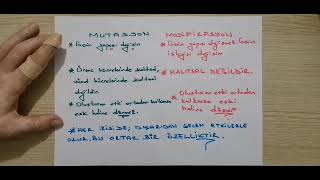 MUTASYON
* Genin yapısı değişir
* Üreme hücrelerinde kalıtsal,
vücut hücrelerinde kalıtsal
değildir.
* Oluşturan etki ortadan kalkarsa
eski haline dönmez.
MODİFİKASYON
* Genin yapısı değişmez. Genin
işleyişi değişir
* KALITSAL DEĞİLDİR.
* Oluşturan etki ortadan
kalkarsa eski
haline döner
* HER İKİSİDE; DIŞARIDAN GELEN ETKİLERLE
OLUR. BU ORTAK BİR ÖZELLİKTİR.